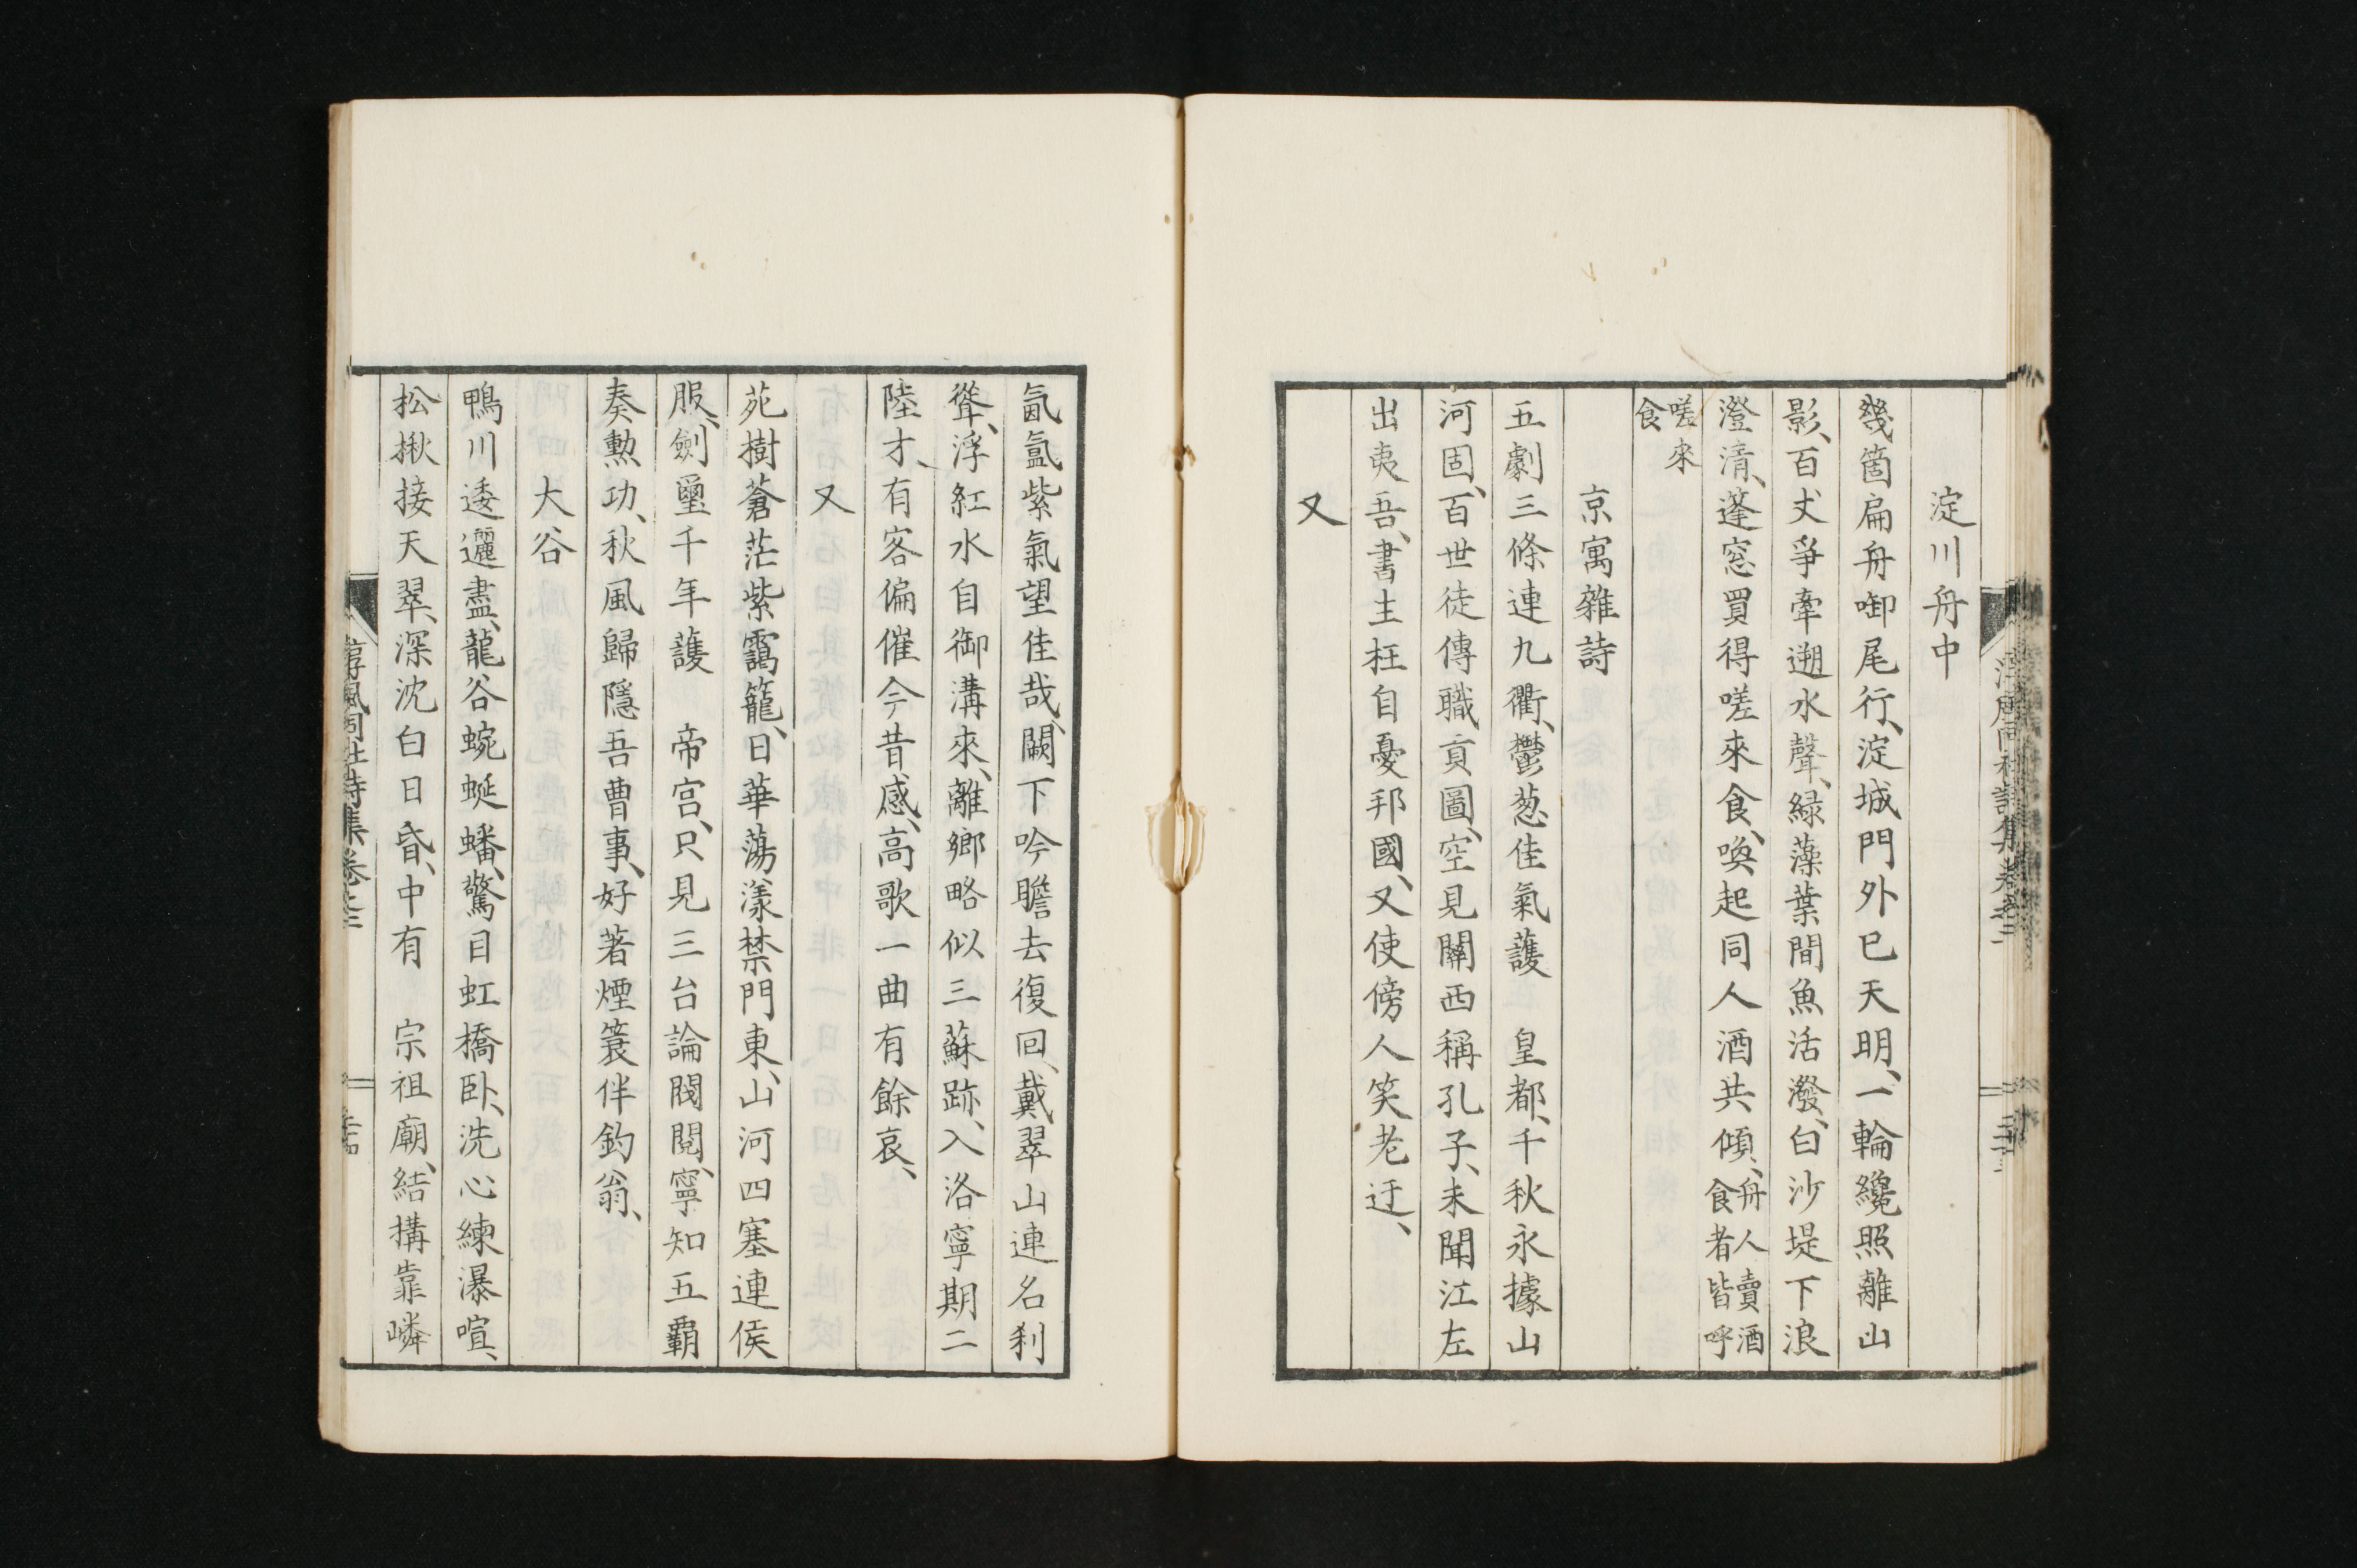 淀川舟中
幾箇扁舟啣尾行、淀城門外已天明、一輪纔照離山
影、百丈爭牽遡水聲、緑藻葉間魚活潑、白沙堤下浪
澄清、蓬窓買得嗟來食、喚起同人酒共傾、舟人賣酒食者皆呼
嗟來食
京寓雜詩
五劇三條連九衢、鬱葱佳氣護　皇都、千秋永據山
河固、百世徒傳職貢圖、空見關西稱孔子、未聞江左
出夷吾、書生枉自憂邦國、又使傍人笑老迂、
又
氤氳紫氣望佳哉、闕下吟瞻去復回、戴翠山連名刹
聳、浮紅水自御溝來、離鄉略似三蘇跡、入洛寧期二
陸才、有客偏催今昔感、高歌一曲有餘哀、
又
苑樹蒼茫紫靄籠、日華蕩漾禁門東、山河四塞連侯
服、劍璽千年護　帝宮、只見三台論閥閱、寧知五霸
奏勲功、秋風歸隱吾曹事、好著煙簑伴釣翁、
大谷
鴨川逶邐盡、龍谷蜿蜒蟠、驚目虹橋卧、洗心練瀑喧、
松楸接天翠、深沈白日昏、中有　宗祖廟、結構靠嶙
淳風同社詩集卷之三